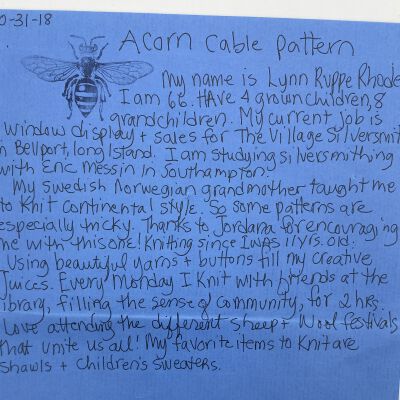 0-31-18
Acorn Cable Pattern
My name is Lynn Ruppe Rhode
I am 66. HAve 4 grown children, 8
grandchildren. My current job is
window display + sales for The Village Silversmit
n Bellport, long Island. I am studying silversmithing
with Eric Messin in Southampton.
My Swedish Norwegian grandmother taught me
to Knit Continental style. So some patterns are
especially tricky. Thanks to Jordana for encouraging
me with this one! Knitting since I was 11 yrs. old.
Using beautiful yarns + buttons fill my creative
Juices. Every Monday I Knit with friends at the
library, filling the sense of community, for 2 hrs.
Love attending the different sheep + Wool festivals
that unite us all! My favorite items to Knit are
shawls + children's sweaters.